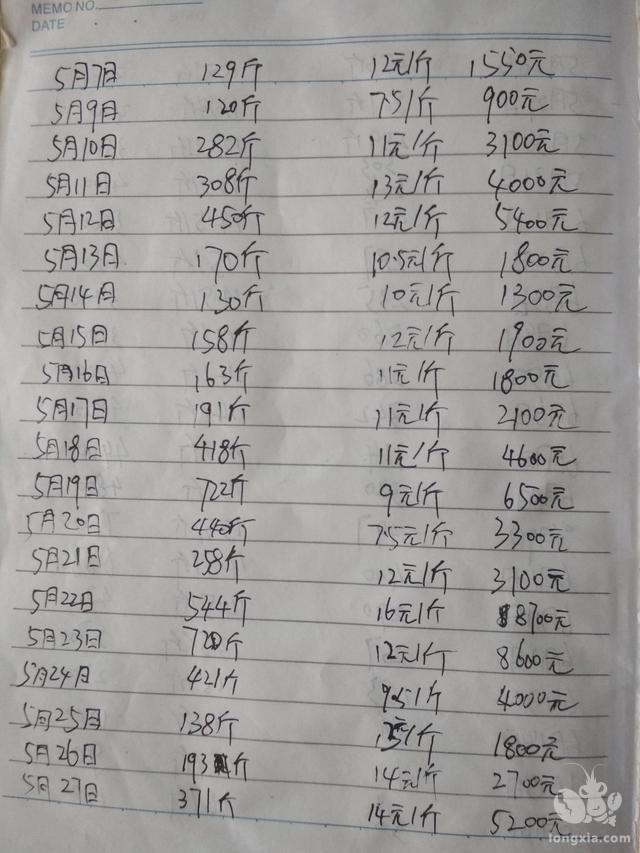 MEMO NO.
DATE
5月7日 129斤 12元/斤 1550元
5月9日 120斤 7.5/斤 900元
5月10日 282斤 11元/斤 3100元
5月11日 308斤 13元/斤 4000元
5月12日 450斤 12元/斤 5400元
5月13日 170斤 10.5元/斤 1800元
5月14日 130斤 10元/斤 1300元
5月15日 158斤 12元/斤 1900元
5月16日 163斤 11元/斤 1800元
5月17日 191斤 11元/斤 2100元
5月18日 418斤 11元/斤 4600元
5月19日 722斤 9元/斤 6500元
5月20日 440斤 7.5元/斤 3300元
5月21日 258斤 12元/斤 3100元
5月22日 544斤 16元/斤 8700元
5月23日 720斤 12元/斤 8600元
5月24日 421斤 9.5/斤 4000元
5月25日 138斤 1800元
5月26日 193斤 14元/斤 2700元
5月27日 371斤 14元/斤 5200元
longxia.com